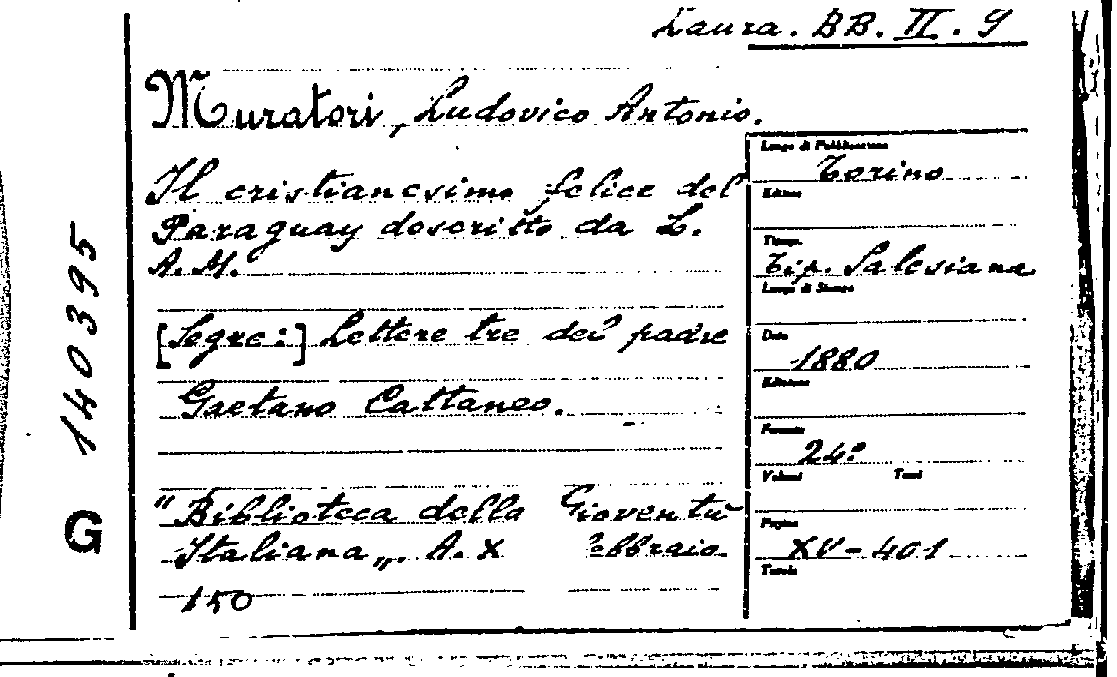 Laura. BB. II. 9
Muratori, Ludovico Antonio.
Il cristianesimo felice del
Paraguay descritto da L.
A. M.
[Segue:] Lettere tre del padre
Gaetano Cattaneo.
"Biblioteca della Gioventù
Italiana". A. X ebbraio
150
Luogo di Pubblicazione
Torino
Editore
Tipogr.
Tip. Salesiana
Luogo di Stampa
Data
1880
Edizione
Formato
24º
Volumi Tomi
Pagine
XV-401
Tavole
G 140395